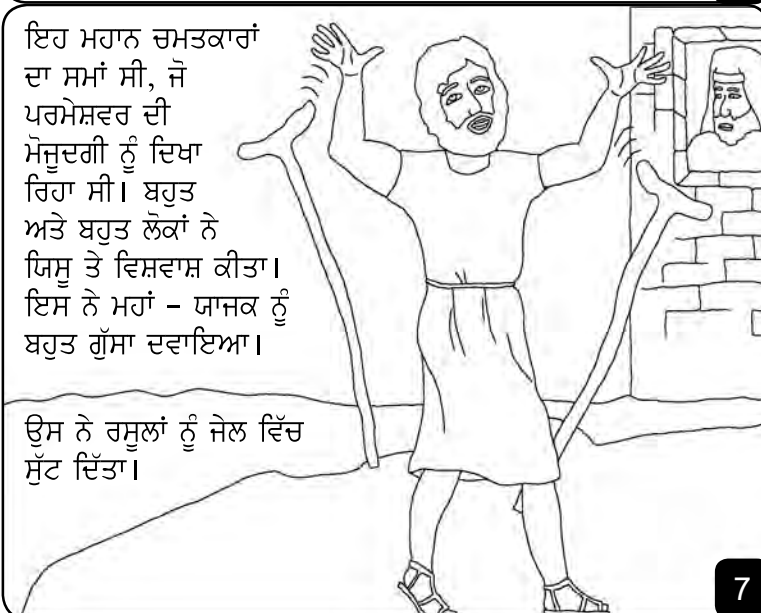 ਇਹ ਮਹਾਨ ਚਮਤਕਾਰਾਂ
ਦਾ ਸਮਾਂ ਸੀ, ਜੋ
ਪਰਮੇਸ਼ਵਰ ਦੀ
ਮੋਜੂਦਗੀ ਨੂੰ ਦਿਖਾ
ਰਿਹਾ ਸੀ। ਬਹੁਤ
ਅਤੇ ਬਹੁਤ ਲੋਕਾਂ ਨੇ
ਯਿਸੂ ਤੇ ਵਿਸ਼ਵਾਸ਼ ਕੀਤਾ।
ਇਸ ਨੇ ਮਹਾਂ – ਯਾਜਕ ਨੂੰ
ਬਹੁਤ ਗੁੱਸਾ ਦਵਾਇਆ।
ਉਸ ਨੇ ਰਸੂਲਾਂ ਨੂੰ ਜੇਲ ਵਿੱਚ
ਸੁੱਟ ਦਿੱਤਾ।
7